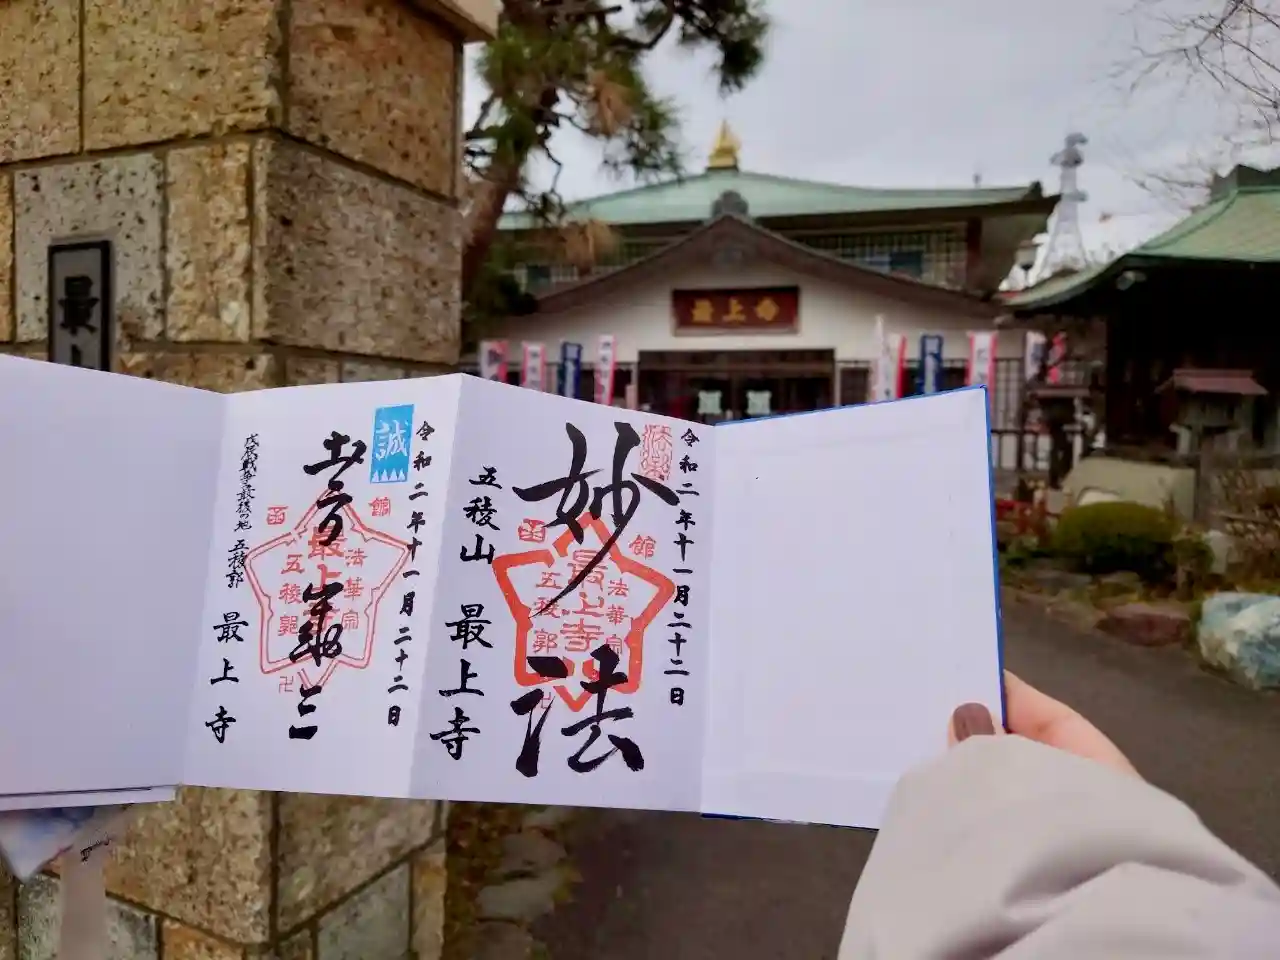 最上寺
最上
令和二年十一月二十二日
妙法
五稜山
最上寺
函館
法華宗
最上寺
五稜郭
卍
令和二年十一月二十二日
誠
土方歳三
戊辰戦争最後の地 五稜郭
最上寺
函館
法華宗
最上寺
五稜郭
卍